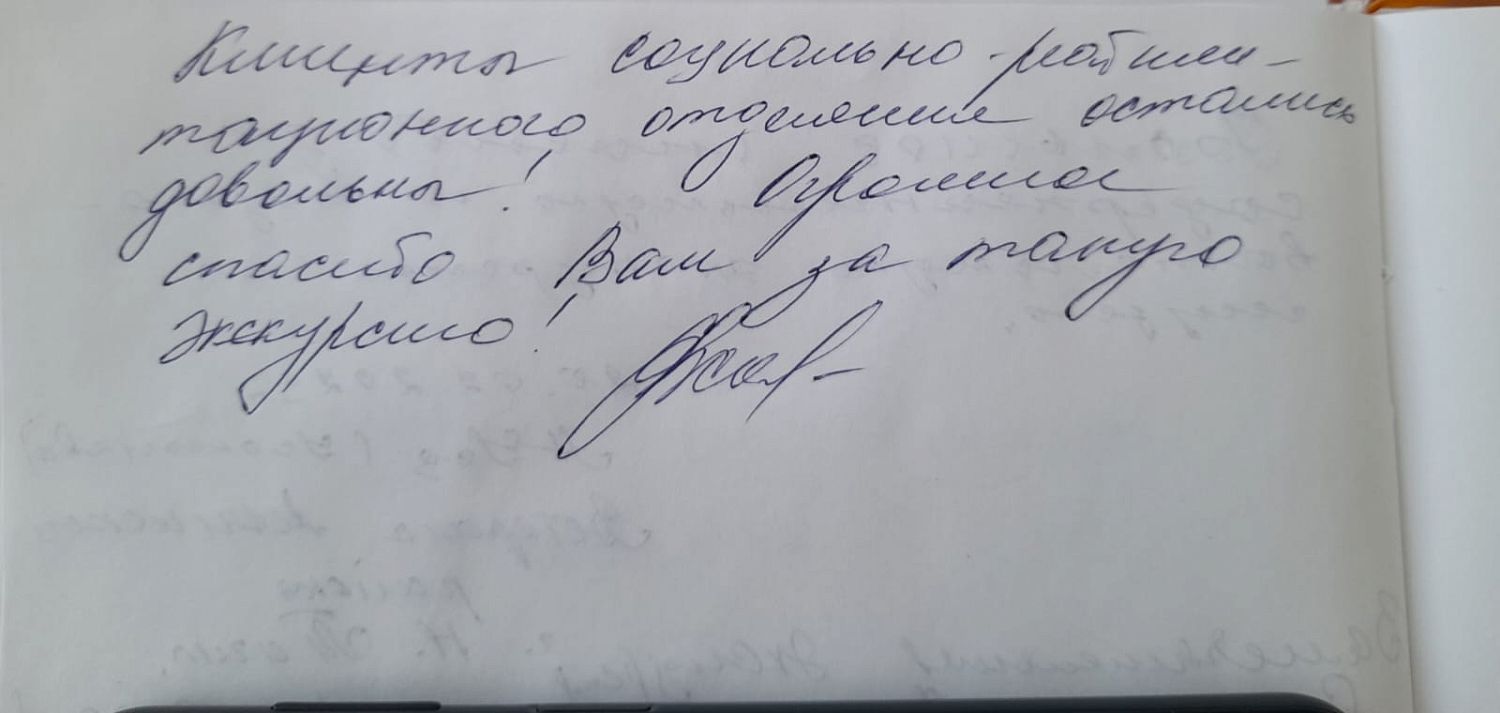 Клиенты социально-реабили-
тационного отделение остались
довольны! Огромное
спасибо Вам за такую
экскурсию!